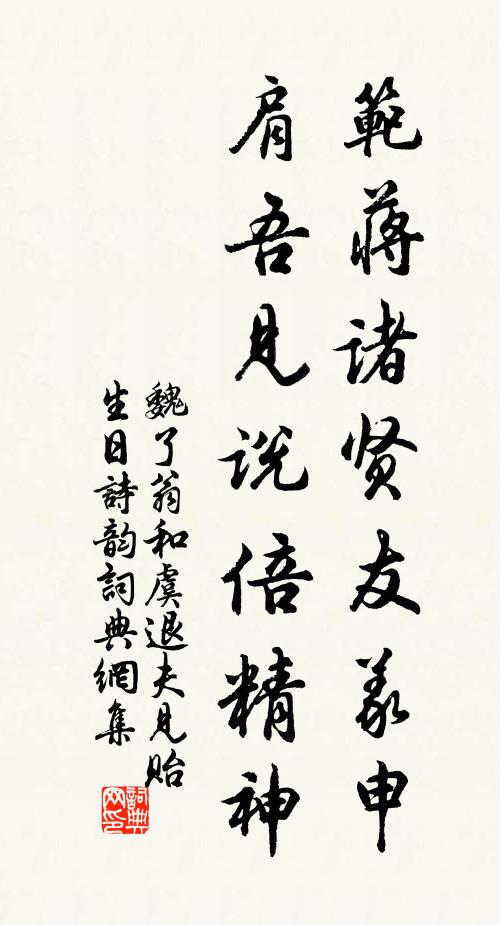 範蔣諸贤友義申
肩吾見说倍精神
魏了翁和虞退夫見貽
生日詩韵詞典網集
詞典
网印